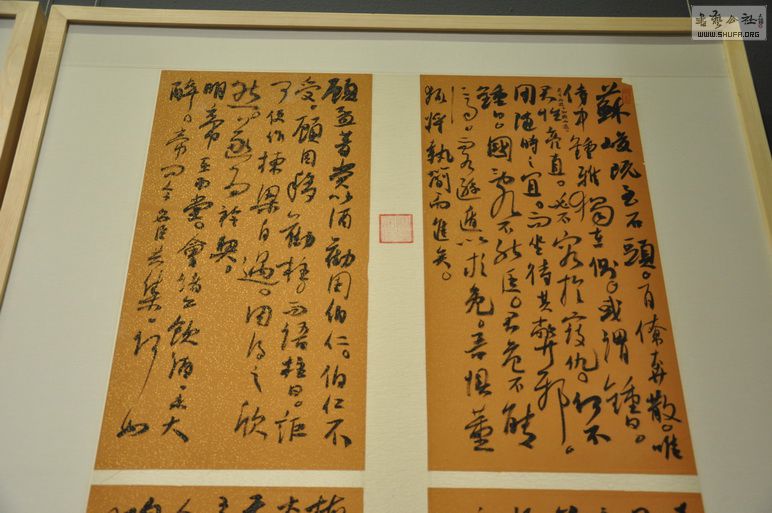 蘇峻既至石頭。百僚奔散。唯
侍中鍾雅獨在側。或謂鍾曰。
君性亮直。必不容於寇仇。何不
用隨時之宜。而坐待其弊邪。
鍾曰。國亂不能匡。君危不能
濟。而各遜遁以求免。吾懼董
狐將執簡而進矣。
顧孟著嘗以酒勸周伯仁。伯仁不
受。顧因移勸柱。而語柱曰。詎
可便作棟梁自遇。周得之欣
然。遂為衿契。
明帝在西堂。會諸公飲酒。未大
醉。帝問今名臣共集。何如
書藝公社
WWW.SHUFA.ORG